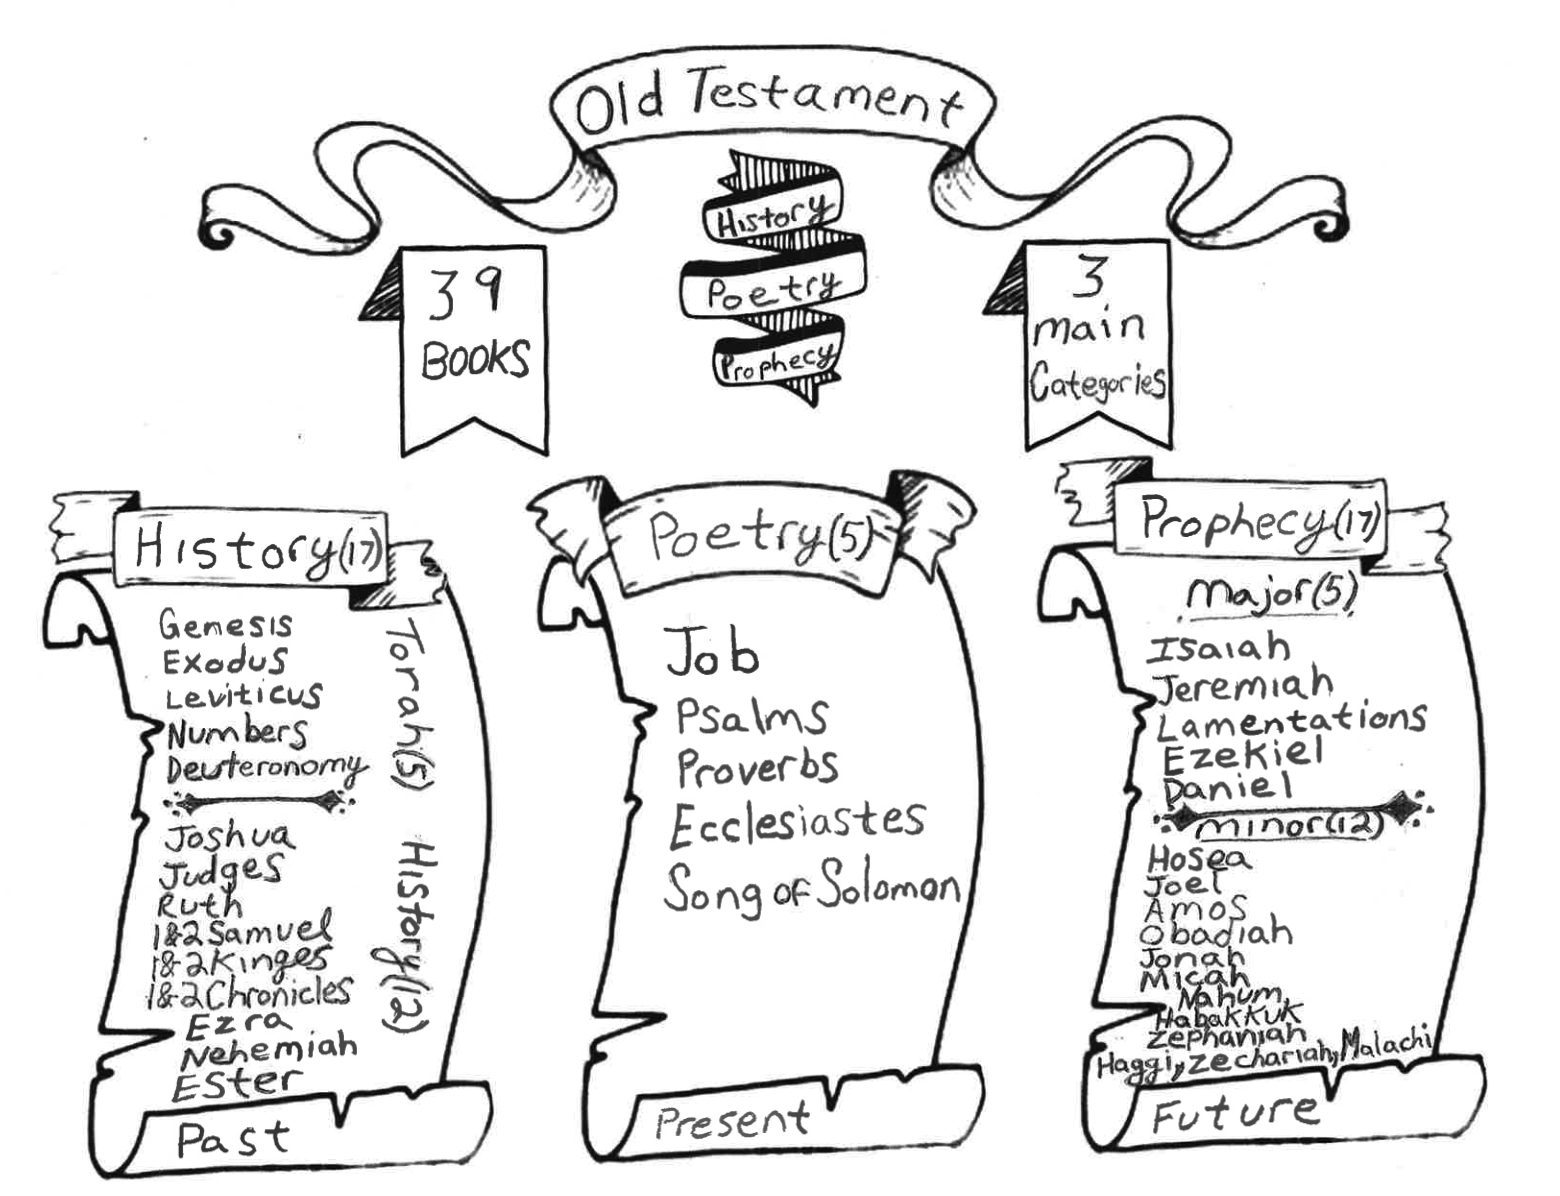 Old Testament
39
BOOKS
History
Poetry
Prophecy
3
main
Categories
History(17)
Genesis
Exodus
Leviticus
Numbers
Deuteronomy
Torah(5)
Joshua
Judges
Ruth
1&2Samuel
1&2Kinges
1&2Chronicles
Ezra
Nehemiah
Ester
History(12)
Past
Poetry(5)
Job
Psalms
Proverbs
Ecclesiastes
Song of Solomon
Present
Prophecy(17)
Major(5)
Isaiah
Jeremiah
Lamentations
Ezekiel
Daniel
minor(12)
Hosea
Joel
Amos
Obadiah
Jonah
Micah
Nahum
Habakkuk
Zephaniah
Haggi, Zechariah, Malachi
Future